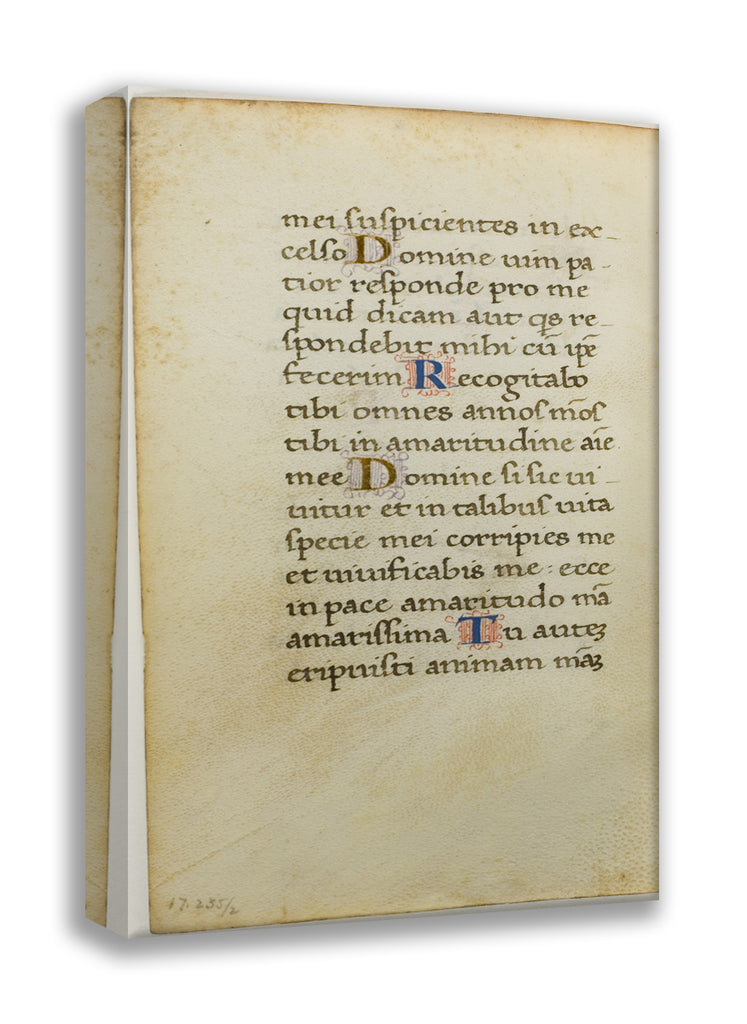 mei suspicientes in ex-
celso Domine uim pa-
tior responde pro me
quid dicam aut qs re-
spondebit mihi cū ipē
fecerim Recogitabo
tibi omnes annos mōs
tibi in amaritudine aīe
mee Domine si sic ui-
uitur et in talibus uita
specie mei corripies me
et uiuificabis me : ecce
in pace amaritudo mā
amarissima Tu autez
eripuisti animam māz
17.235/2